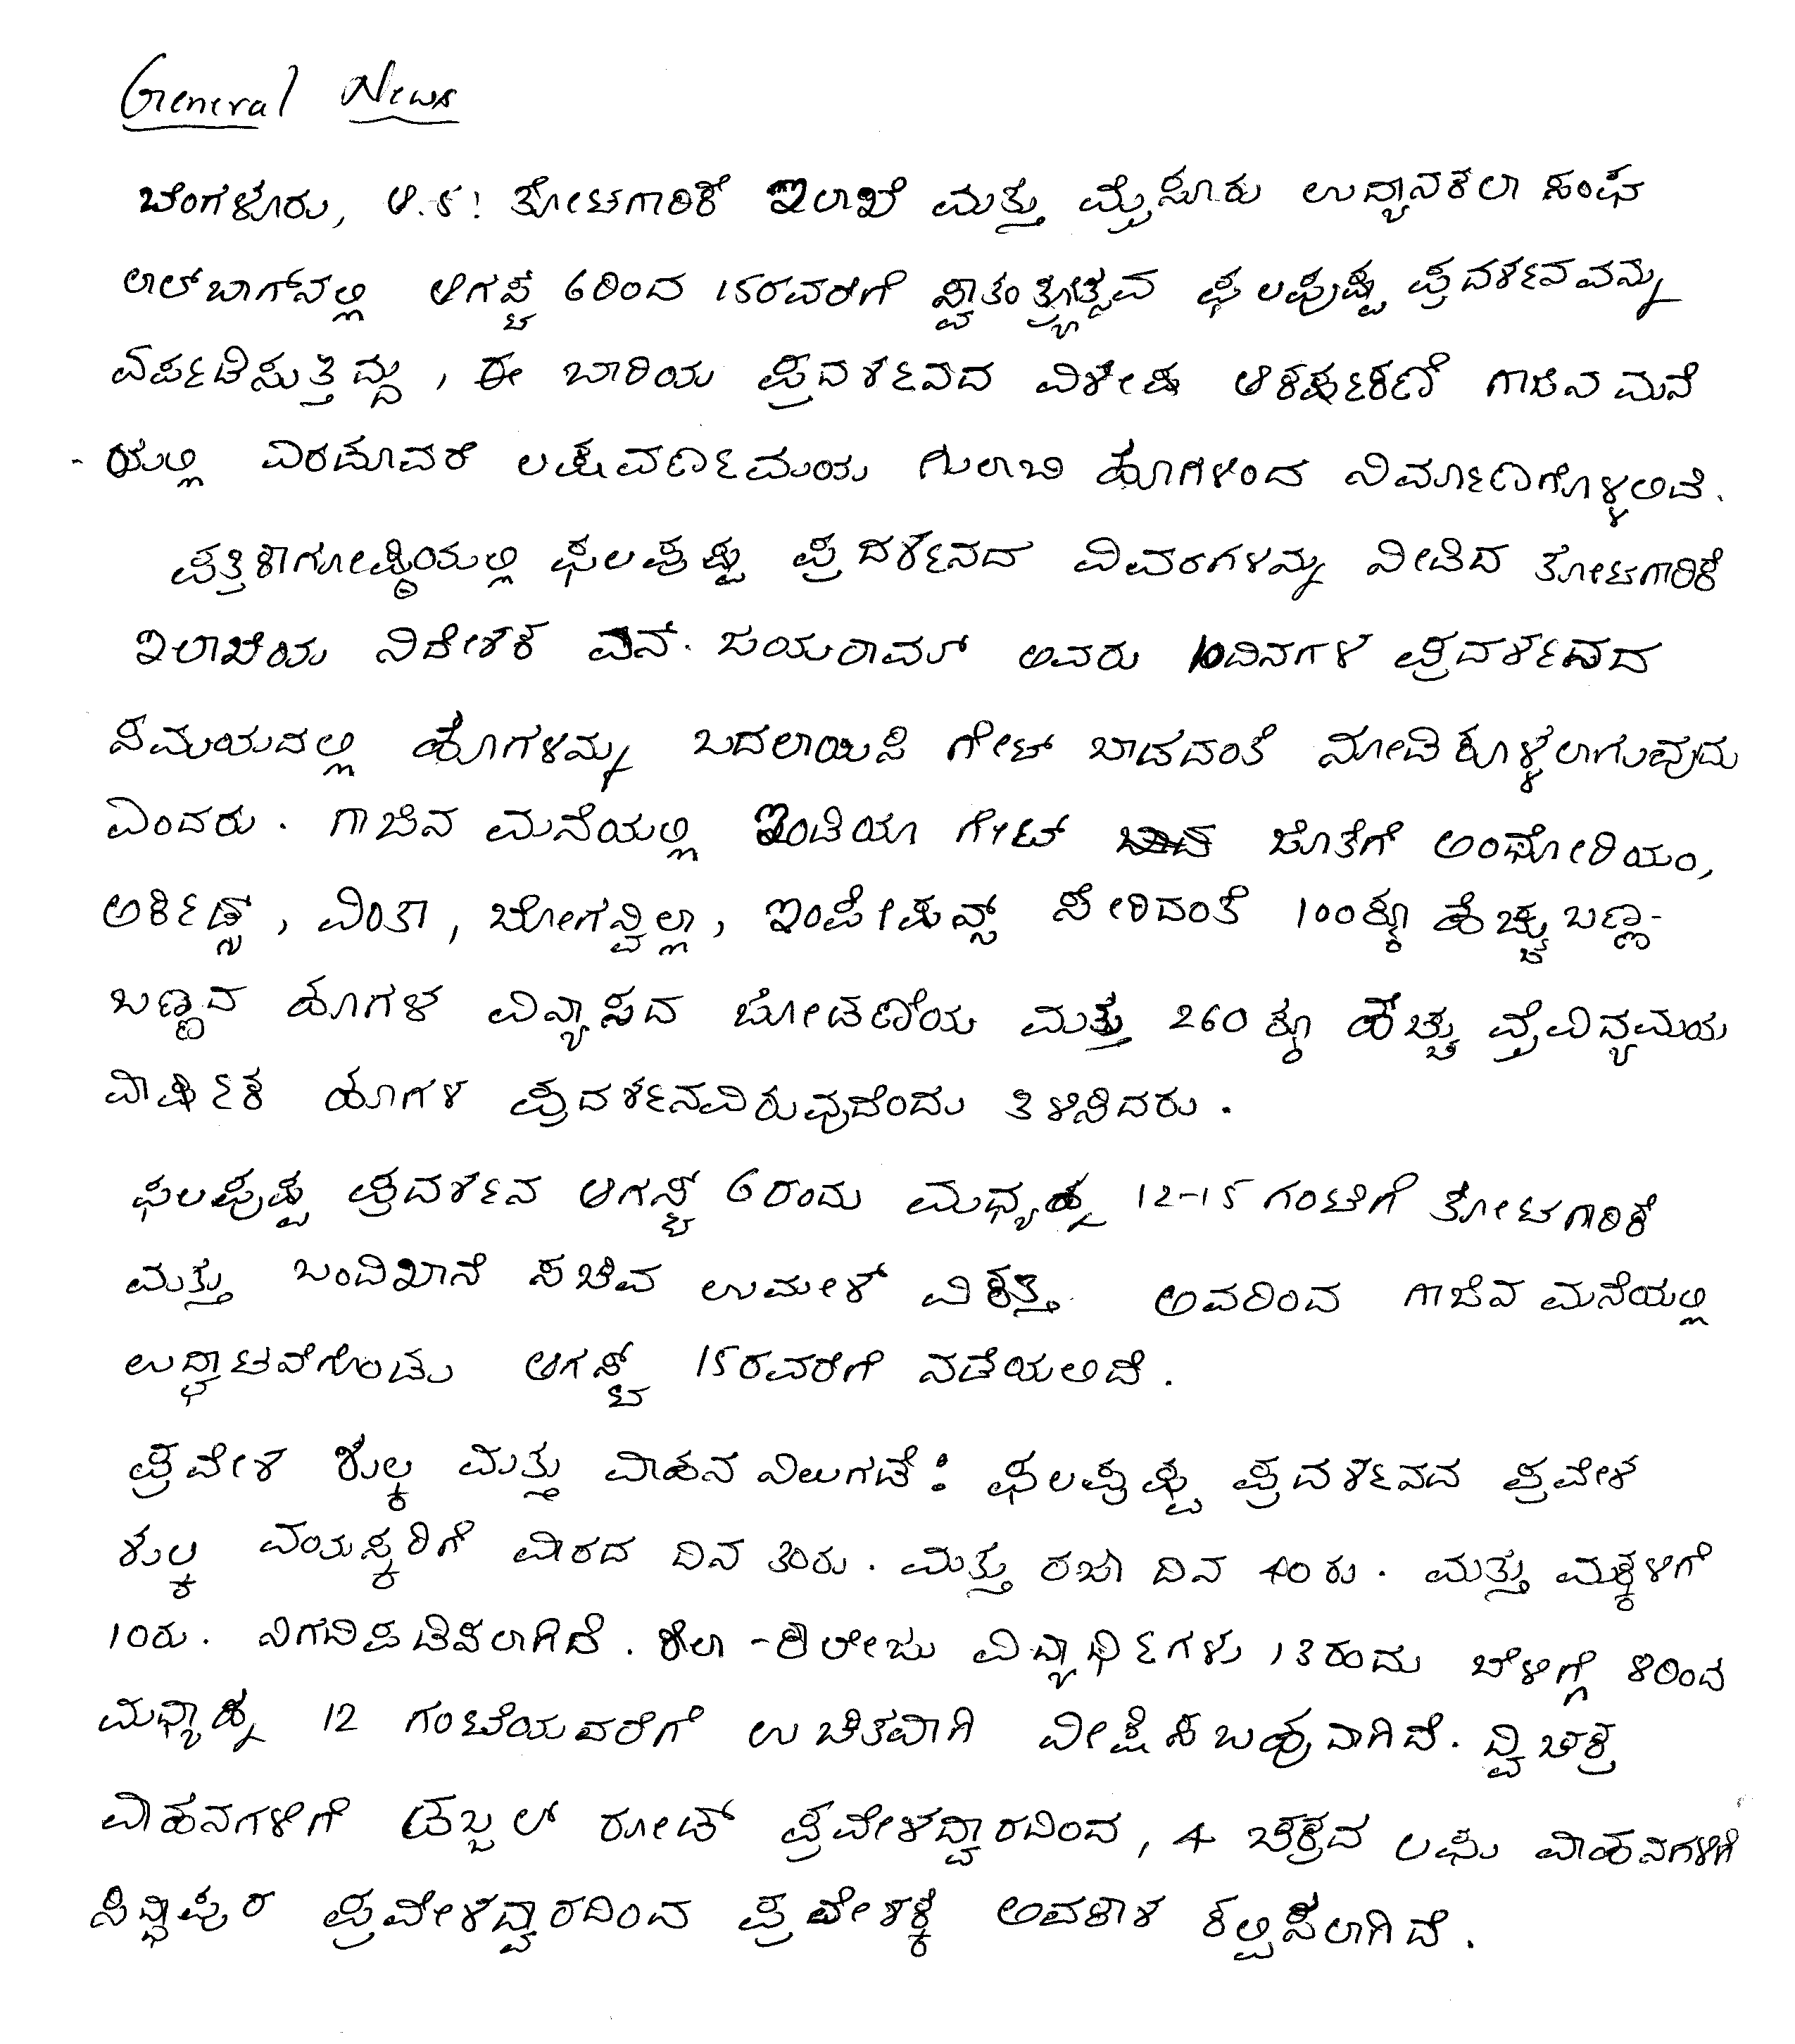 General News
ಬೆಂಗಳೂರು, ಆ.5: ತೋಟಗಾರಿಕೆ ಇಲಾಖೆ ಮತ್ತು ಮೈಸೂರು ಉದ್ಯಾನಕಲಾ ಸಂಘ
ಲಾಲ್‌ಬಾಗ್‌ನಲ್ಲಿ ಆಗಸ್ಟ್ 6ರಿಂದ 15ರವರೆಗೆ ಸ್ವಾತಂತ್ರ್ಯೋತ್ಸವ ಫಲಪುಷ್ಪ ಪ್ರದರ್ಶನವನ್ನು
ಏರ್ಪಡಿಸುತ್ತಿದ್ದು, ಈ ಬಾರಿಯ ಪ್ರದರ್ಶನದ ವಿಶೇಷ ಆಕರ್ಷಕಣೆ ಗಾಜಿನ ಮನೆ
-ಯಲ್ಲಿ ಎರಡೂವರೆ ಲಕ್ಷ ವರ್ಣಮಯ ಗುಲಾಬಿ ಹೂಗಳಿಂದ ನಿರ್ಮಾಣಗೊಳ್ಳಲಿದೆ.
ಪತ್ರಿಕಾಗೋಷ್ಠಿಯಲ್ಲಿ ಫಲಪುಷ್ಪ ಪ್ರದರ್ಶನದ ವಿವರಗಳನ್ನು ನೀಡಿದ ತೋಟಗಾರಿಕೆ
ಇಲಾಖೆಯ ನಿರ್ದೇಶಕ ಎನ್. ಜಯರಾಮ್ ಅವರು 10ದಿನಗಳ ಪ್ರದರ್ಶನದ
ಸಮಯದಲ್ಲಿ ಹೂಗಳನ್ನು ಬದಲಾಯಿಸಿ ಗೇಟ್ ಬಾಡದಂತೆ ನೋಡಿಕೊಳ್ಳಲಾಗುವುದು
ಎಂದರು. ಗಾಜಿನ ಮನೆಯಲ್ಲಿ ಇಂಡಿಯಾ ಗೇಟ್ ಜೊತೆಗೆ ಅಂಥೋರಿಯಂ,
ಆರ್ಕಿಡ್ಸ್, ವಿಂಕಾ, ಬೋಗನ್ವಿಲ್ಲಾ, ಇಂಪೇಷನ್ಸ್ ಸೇರಿದಂತೆ 100ಕ್ಕೂ ಹೆಚ್ಚು ಬಣ್ಣ-
ಬಣ್ಣದ ಹೂಗಳ ವಿನ್ಯಾಸದ ಜೋಡಣೆಯ ಮತ್ತು 260ಕ್ಕೂ ಹೆಚ್ಚು ವೈವಿಧ್ಯಮಯ
ವಾರ್ಷಿಕ ಹೂಗಳ ಪ್ರದರ್ಶನವಿರುವುದೆಂದು ತಿಳಿಸಿದರು.
ಫಲಪುಷ್ಪ ಪ್ರದರ್ಶನ ಆಗಸ್ಟ್ 6ರಂದು ಮಧ್ಯಾಹ್ನ 12-15 ಗಂಟೆಗೆ ತೋಟಗಾರಿಕೆ
ಮತ್ತು ಬಂದಿಖಾನೆ ಸಚಿವ ಉಮೇಶ್ ವಿ ಕತ್ತಿ ಅವರಿಂದ ಗಾಜಿನ ಮನೆಯಲ್ಲಿ
ಉದ್ಘಾಟನೆಗೊಂಡು ಆಗಸ್ಟ್ 15ರವರೆಗೆ ನಡೆಯಲಿದೆ.
ಪ್ರವೇಶ ಶುಲ್ಕ ಮತ್ತು ವಾಹನ ನಿಲುಗಡೆ: ಫಲಪುಷ್ಪ ಪ್ರದರ್ಶನದ ಪ್ರವೇಶ
ಶುಲ್ಕ ವಯಸ್ಕರಿಗೆ ವಾರದ ದಿನ 30ರು. ಮತ್ತು ರಜಾ ದಿನ 40ರು. ಮತ್ತು ಮಕ್ಕಳಿಗೆ
10ರು. ನಿಗದಿಪಡಿಸಲಾಗಿದೆ. ಶಾಲಾ-ಕಾಲೇಜು ವಿದ್ಯಾರ್ಥಿಗಳು 13ರಂದು ಬೆಳಿಗ್ಗೆ 8ರಿಂದ
ಮಧ್ಯಾಹ್ನ 12 ಗಂಟೆಯವರೆಗೆ ಉಚಿತವಾಗಿ ವೀಕ್ಷಿಸಬಹುದಾಗಿದೆ. ದ್ವಿಚಕ್ರ
ವಾಹನಗಳಿಗೆ ಡಬ್ಬಲ್ ರೋಡ್ ಪ್ರವೇಶದ್ವಾರದಿಂದ, 4 ಚಕ್ರದ ಲಘು ವಾಹನಗಳಿಗೆ
ಸಿದ್ಧಾಪುರ ಪ್ರವೇಶದ್ವಾರದಿಂದ ಪ್ರವೇಶಕ್ಕೆ ಅವಕಾಶ ಕಲ್ಪಿಸಲಾಗಿದೆ.